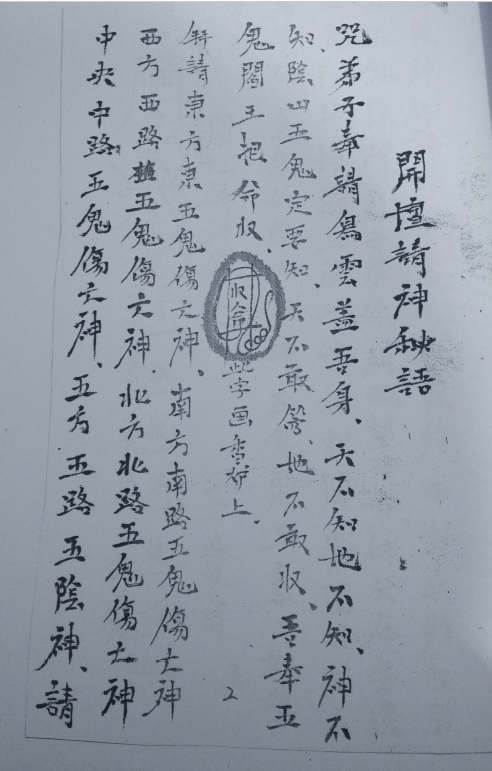 開壇請神秘語
咒弟子奉請烏雲蓋吾身、天不知地不知、神不
知、陰山五鬼定要知、天不敢管、地不敢收、吾奉五
鬼閻王祖命收、收命此字画香布上、
請東方東五鬼傷亡神、南方南路五鬼傷亡神
西方西路五鬼傷亡神、北方北路五鬼傷亡神
中央中路五鬼傷亡神、五方五路五陰神、請
2